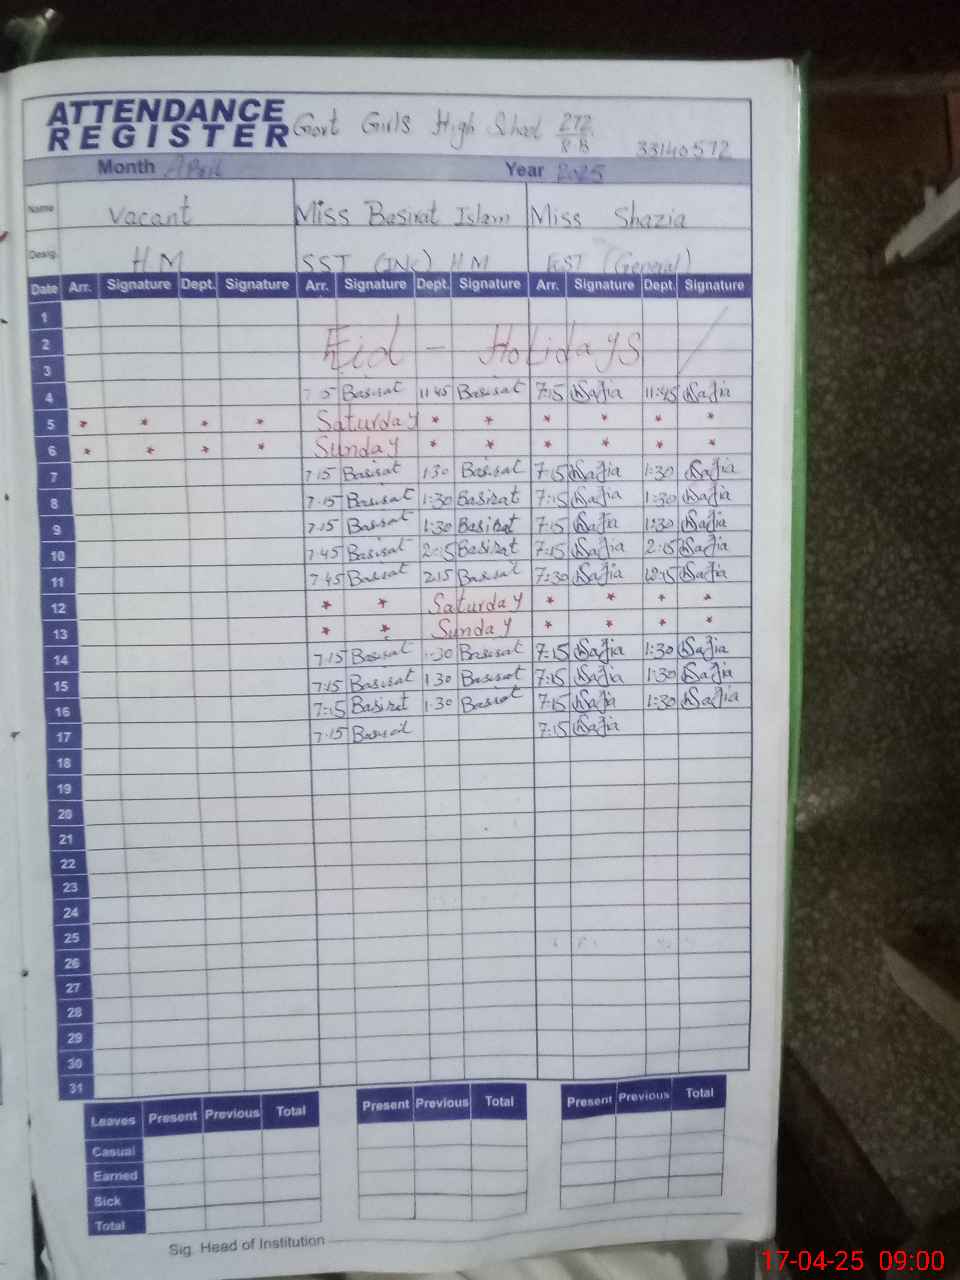 ATTENDANCE REGISTER Govt Girls High School 272 R.B 33140572
Month April Year 2025
Name Vacant Miss Basirat Islam Miss Shazia
Desig. HM SST (INC) HM EST (General)
Date Arr. Signature Dept. Signature Arr. Signature Dept. Signature Arr. Signature Dept. Signature
1
2 Eid - Holidays
3
4 7 15 Basirat 11 45 Basirat 7:15 Safia 11:45 Safia
5 * * * * Saturday * * * * * *
6 * * * * Sunday * * * * * *
7 7 15 Basirat 1:30 Basirat 7:15 Safia 1:30 Safia
8 7:15 Basirat 1:30 Basirat 7:15 Safia 1:30 Safia
9 7:15 Basirat 1:30 Basirat 7:15 Safia 1:30 Safia
10 7:45 Basirat 2:15 Basirat 7:15 Safia 2:15 Safia
11 7 45 Basirat 2:15 Basirat 7:30 Safia 12:15 Safia
12 * * Saturday * * * *
13 * * Sunday * * * *
14 7:15 Basirat 1:30 Basirat 7:15 Safia 1:30 Safia
15 7:15 Basirat 1 30 Basirat 7:15 Safia 1:30 Safia
16 7:15 Basirat 1.30 Basirat 7:15 Safia 1:30 Safia
17 7.15 Basirat 7:15 Safia
18
19
20
21
22
23
24
25
26
27
28
29
30
31
Leaves Present Previous Total Present Previous Total Present Previous Total
Casual
Earned
Sick
Total
Sig. Head of Institution
17-04-25 09:00